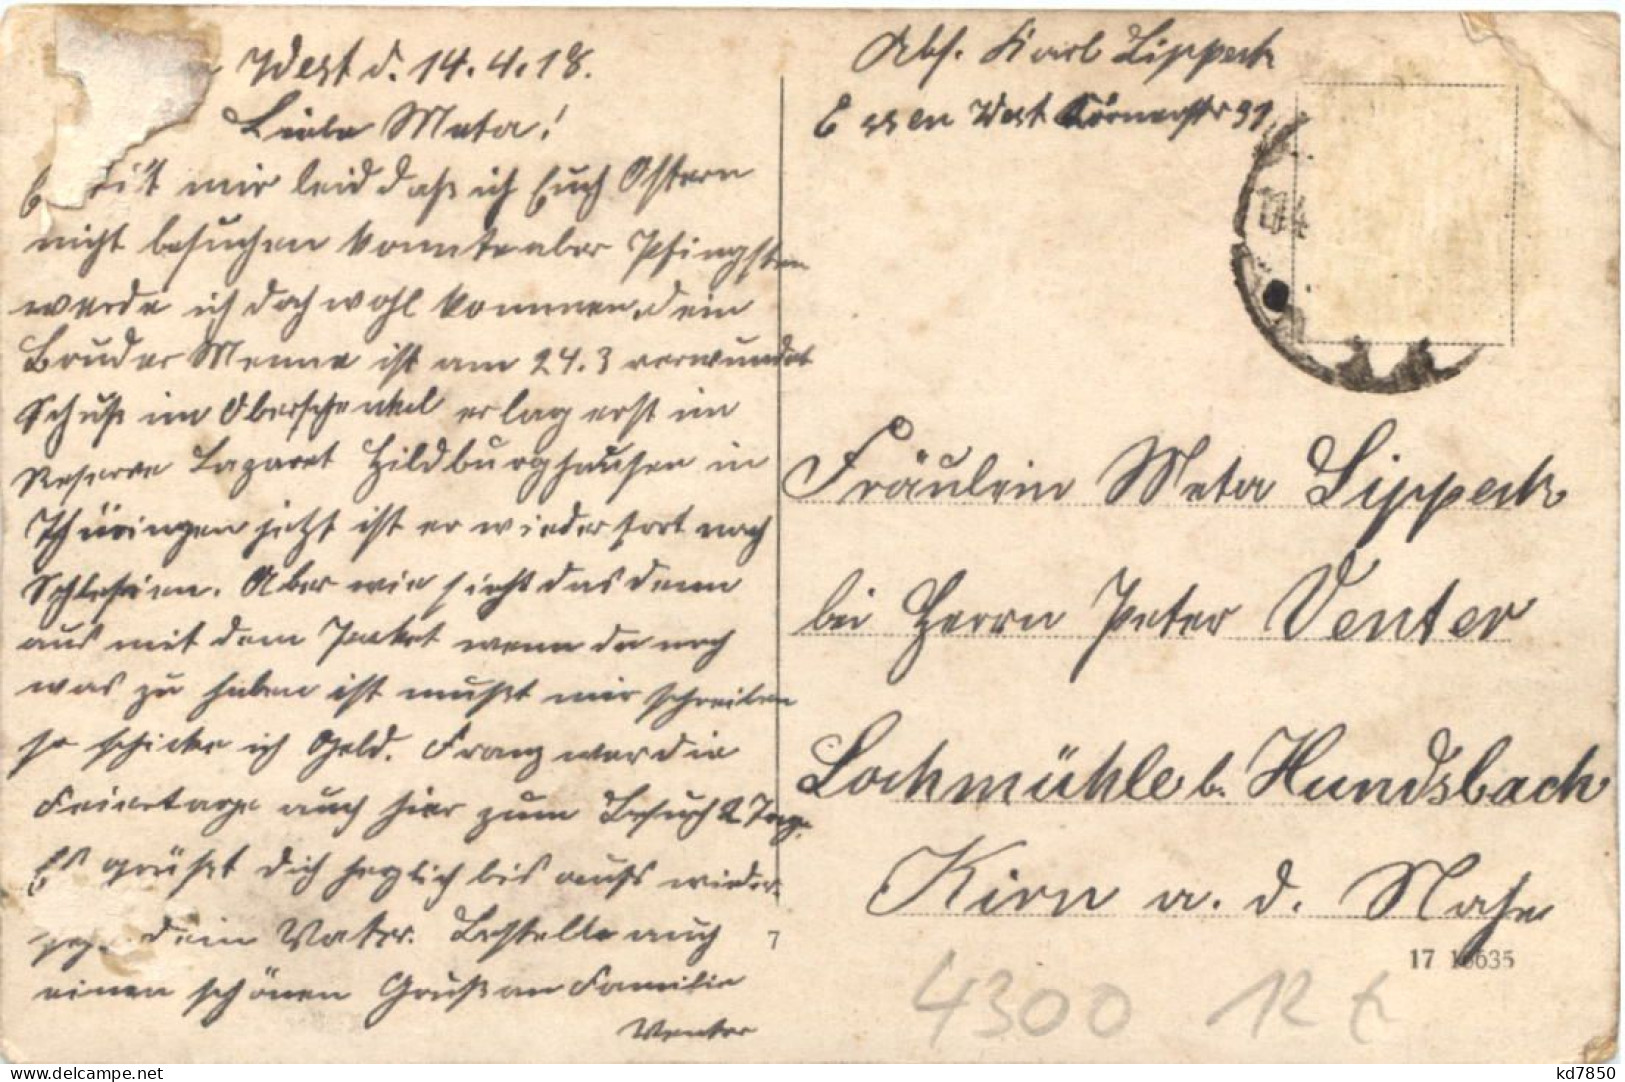 West d. 14.4.18.
Liebe Meta!
tut mir leid daß ich Euch Ostern
nicht besuchen konnte aber Pfingsten
werde ich doch wohl kommen. dein
Bruder Menne ist am 24.3 verwundet
Schuß im Oberschenkel er lag erst im
Reserve Lazaret Hildburghausen in
Thüringen jetzt ist er wieder fort nach
Schlesien. Aber wie sieht das denn
aus mit dem Packet wenn da noch
was zu haben ist mußt mir schreiben
so schicke ich Geld. Franz war die
Feiertage auch hier zum Besuch 2 Tage.
Es grüßt dich herzlich bis aufs wieder
dein Vater. Bestelle auch
einen schönen Gruß an Familie
Venter
Abs. Karl Lippeck
Essen West Körnerstr 31
Fräulein Meta Lippeck
bei Herrn Peter Venter
Lochmühle b. Hundsbach
Kirn a. d. Nahe
7
17 16635
4300 12
kd7850